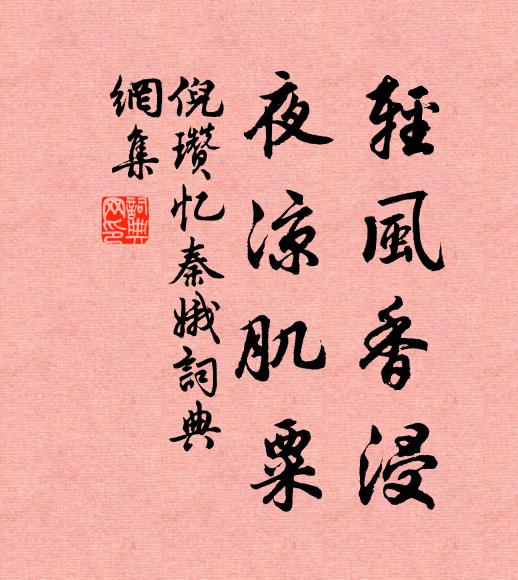 輕風香浸
夜涼肌粟
倪瓚忆秦娥詞典
網集
詞典
网印